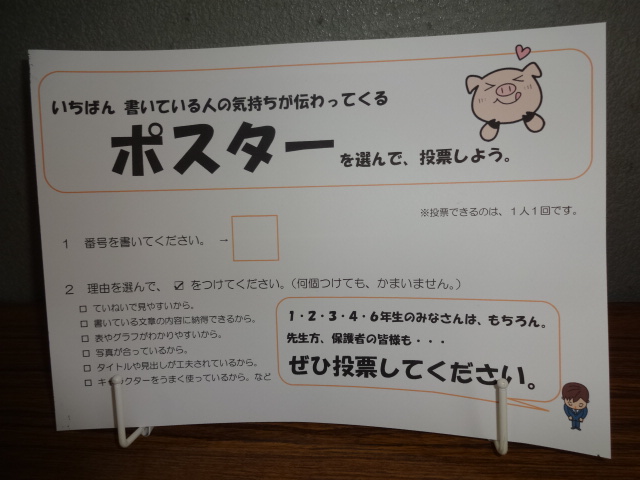 いちばん 書いている人の気持ちが伝わってくる
ポスターを選んで、投票しよう。
※投票できるのは、1人1回です。
1 番号を書いてください。 →
2 理由を選んで、☑をつけてください。(何個つけても、かまいません。)
□ ていねいで見やすいから。
□ 書いている文章の内容に納得できるから。
□ 表やグラフがわかりやすいから。
□ 写真が合っているから。
□ タイトルや見出しが工夫されているから。
□ キャラクターをうまく使っているから。など
1・2・3・4・6年生のみなさんは、もちろん。
先生方、保護者の皆様も・・・
ぜひ投票してください。